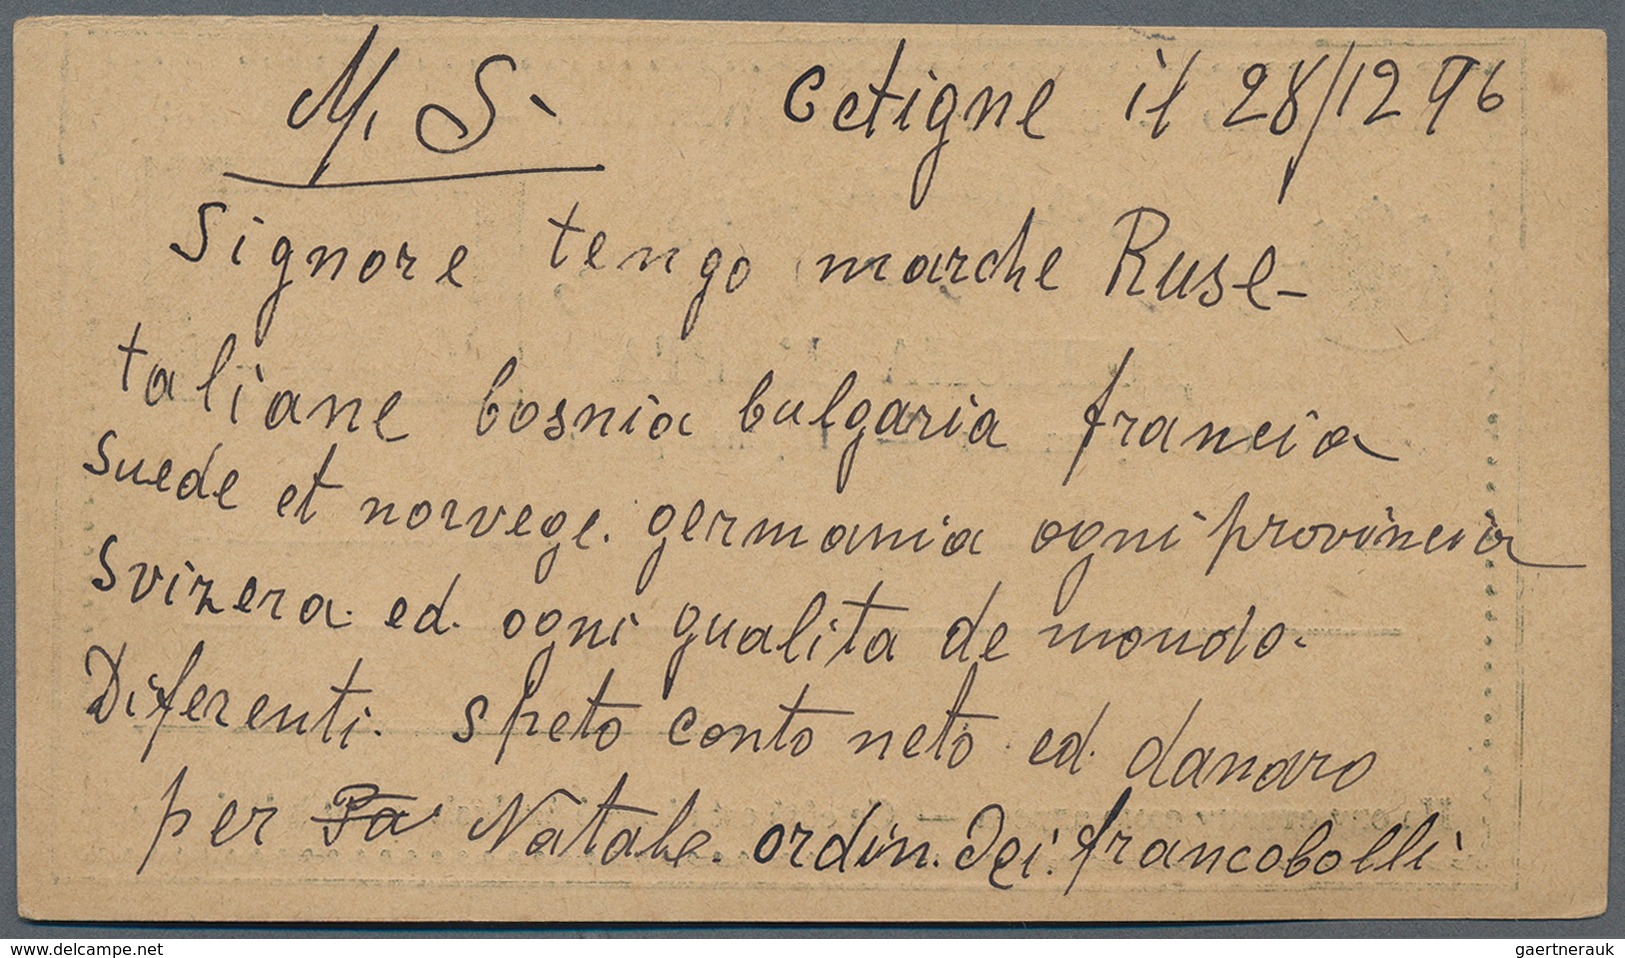 M. S. Cetigne il 28/12 96
Signore tengo marche Ruse-
taliane bosnia bulgaria francia
suede et norvege. germania ogni provincia
svizera. ed. ogni qualita de mondo.
Diferenti. speto conto neto ed. danaro
per Pa Natale. ordin. dei. francobolli
www.delcampe.net
gaertnerauk